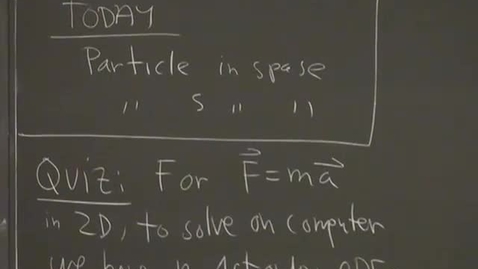 TODAY
Particle in spase
" s " "
Quiz: For F⃗ = ma⃗
in 2D, to solve on computer
we have